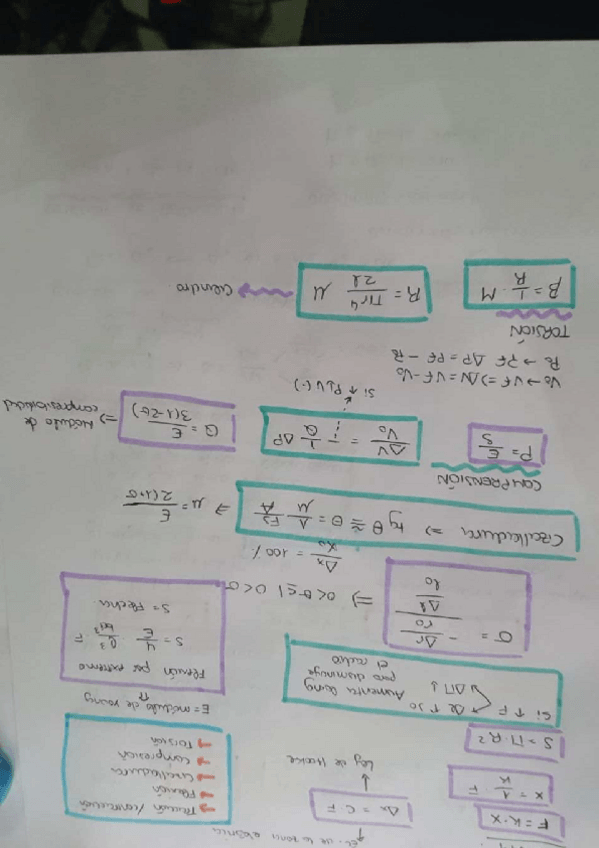 F = K · X
x = 1/K · F
S = Π · R²
Δx = C · F
Ley de Hooke
Flexión
Cizalladura
compresión
Torsión
E = módulo de young
Si ↑ F → Δl ↑ >0
↘ ΔΠ ↓
Aumenta long
para disminuye
el radio
Flexión por extremo
s = 4/E · l³/ba³ · F
S = Flecha
σ = - Δr/r₀ / Δl/l₀ ⇒ 0<σ≤1 0<σ
Δx/x₀ = 100 %
Cizalladura ⇒ tg θ ≅ θ = 1/μ F/A ⇒ μ = E/2(1+σ
COMPRENSIÓN
P = F/S
ΔV/V₀ = - 1/Q ΔP
Q = E/3(1-2σ) ⇒ Módulo de
compresibilidad
Si ↑ P ↓ V (-)
V₀ → VF ⇒ ΔV = VF - V₀
P₀ → PF ΔP = PF - P₀
TORSIÓN
β = 1/R · M
R = Πr⁴/2l μ
Cilindro